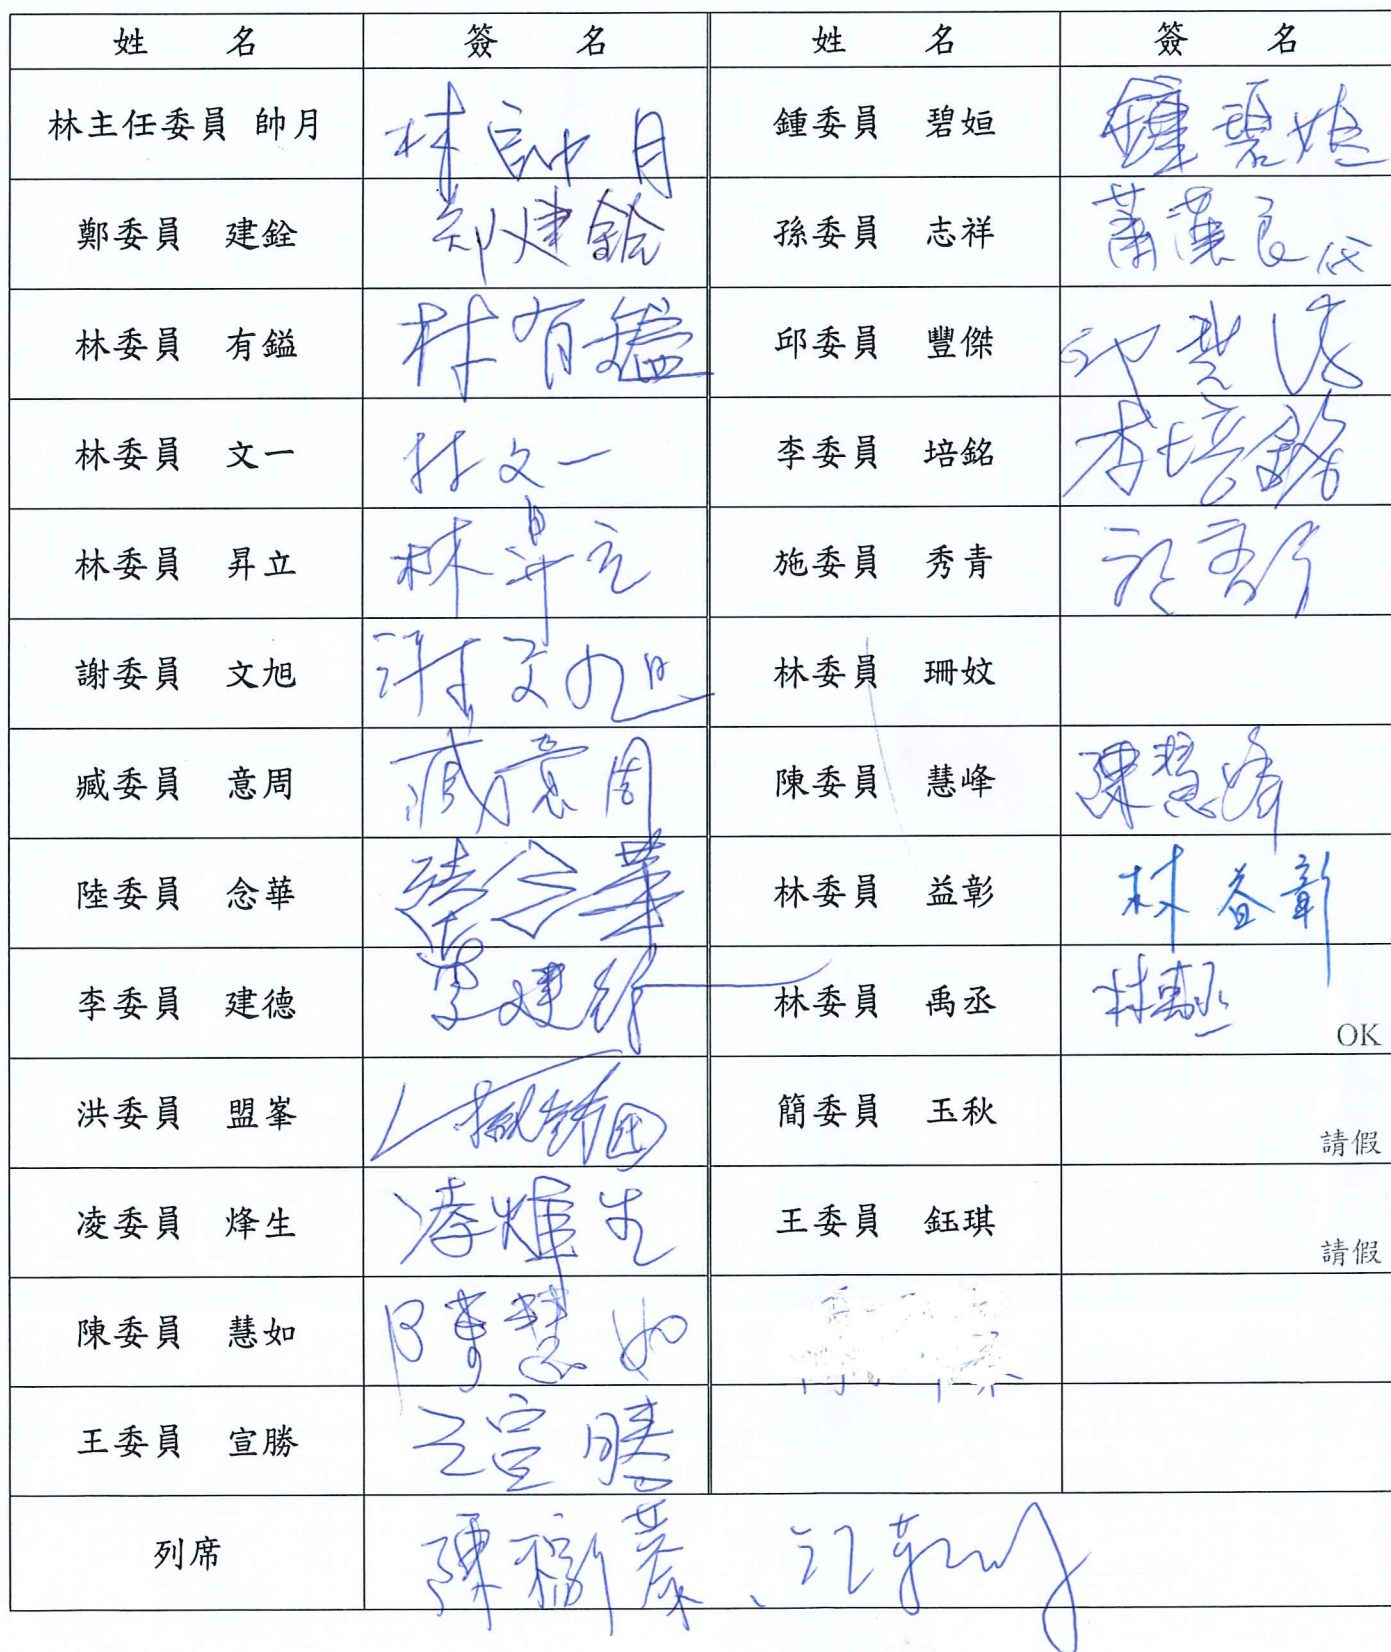 姓 名 簽 名 姓 名 簽 名
林主任委員 帥月 林帥月 鍾委員 碧姮 鍾碧姮
鄭委員 建銓 鄭建銓 孫委員 志祥 蕭漢良代
林委員 有鎰 林有鎰 邱委員 豐傑 邱豐傑
林委員 文一 林文一 李委員 培銘 李培銘
林委員 昇立 林昇立 施委員 秀青
謝委員 文旭 謝文旭 林委員 珊妏
臧委員 意周 臧意周 陳委員 慧峰 陳慧峰
陸委員 念華 陸念華 林委員 益彰 林益彰
李委員 建德 李建德 林委員 禹丞 林禹丞 OK
洪委員 盟峯 簡委員 玉秋 請假
凌委員 烽生 王委員 鈺琪 請假
陳委員 慧如 陳慧如
王委員 宣勝 王宣勝
列席